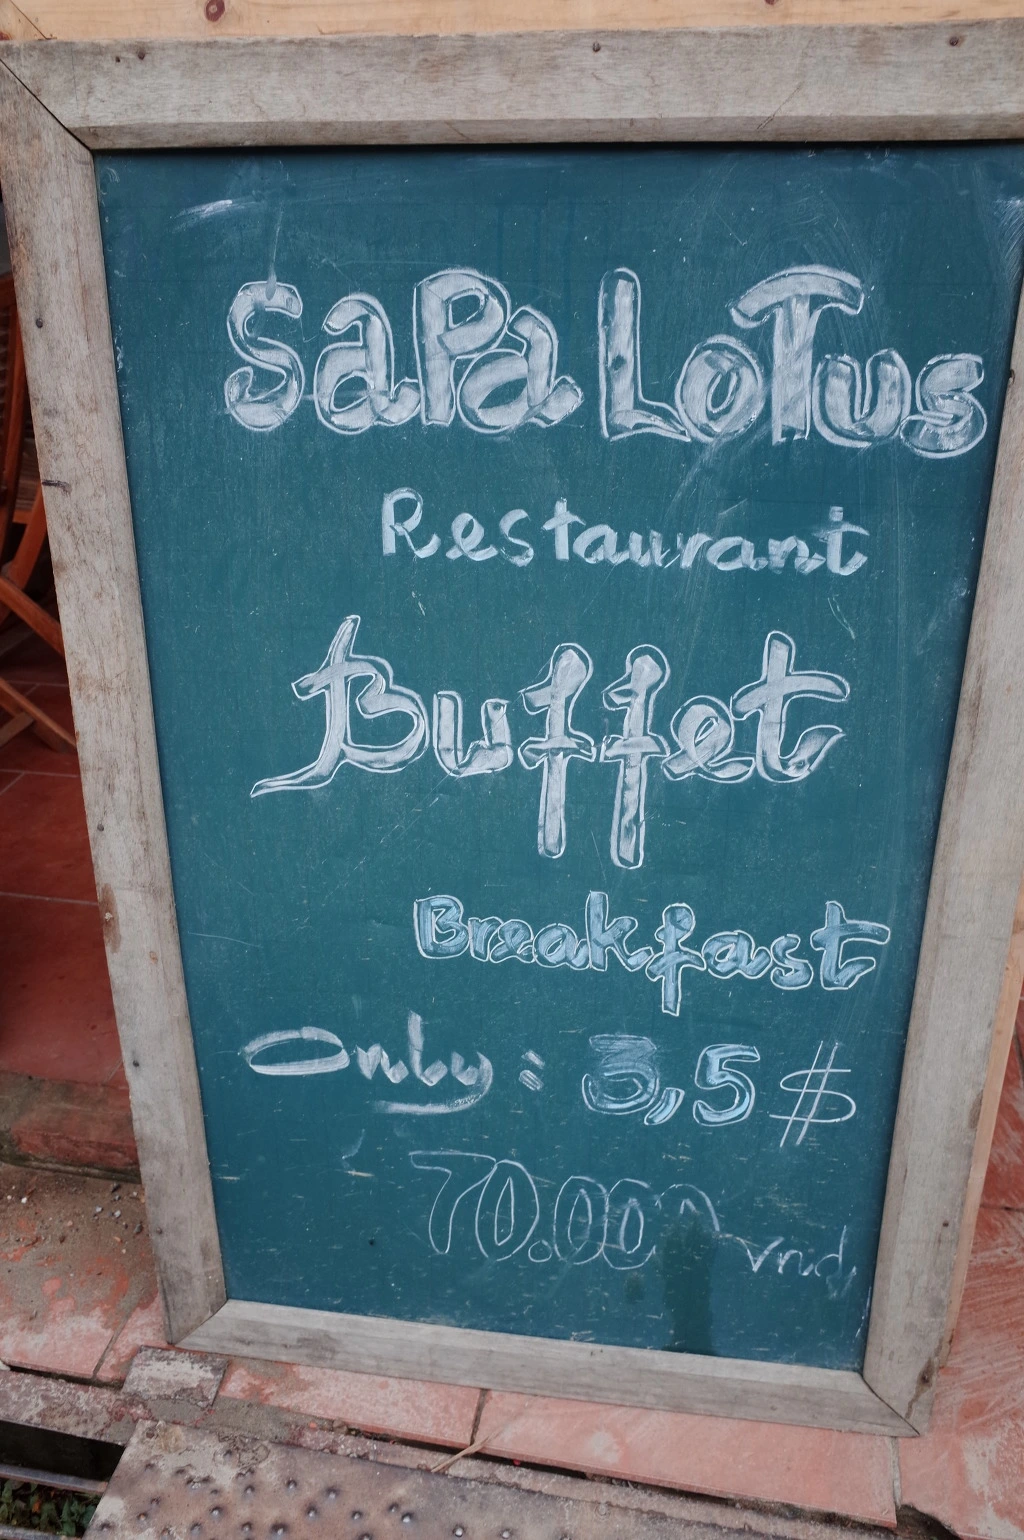 SaPa LoTus
Restaurant
Buffet
Breakfast
Only : 3,5 $
70.000 vnd